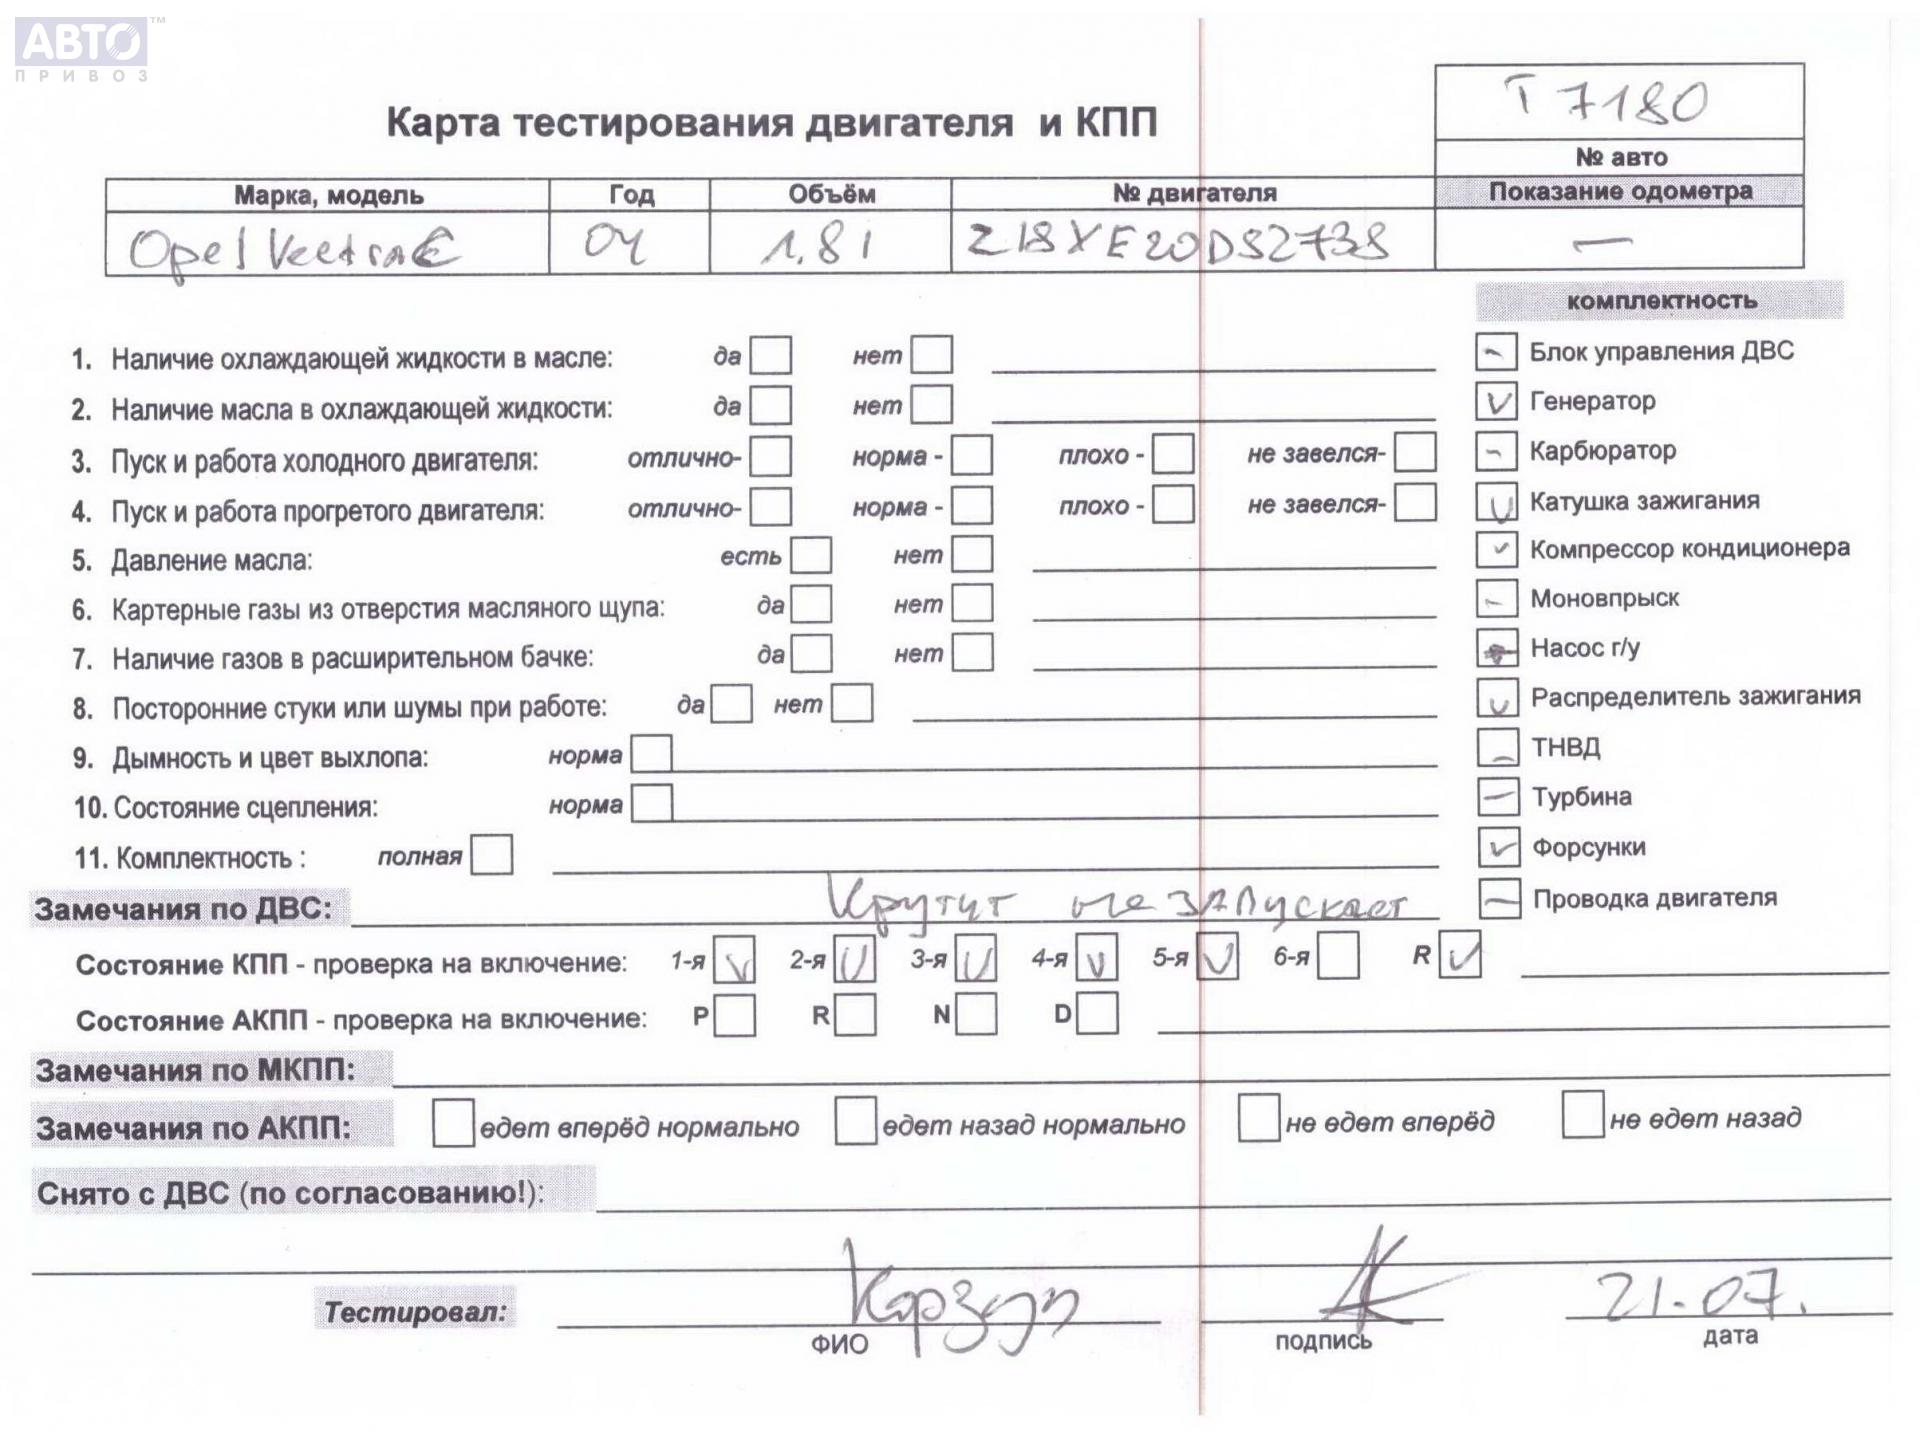 АВТО™
ПРИВОЗ
Т 7180
Карта тестирования двигателя и КПП
№ авто
Марка, модель Год Объём № двигателя Показание одометра
Opel Vectra C 04 1.8i Z18XE20D52738 —
комплектность
1. Наличие охлаждающей жидкости в масле: да нет
Блок управления ДВС
2. Наличие масла в охлаждающей жидкости: да нет
Генератор
3. Пуск и работа холодного двигателя: отлично- норма - плохо - не завелся-
Карбюратор
4. Пуск и работа прогретого двигателя: отлично- норма - плохо - не завелся-
Катушка зажигания
5. Давление масла: есть нет
Компрессор кондиционера
6. Картерные газы из отверстия масляного щупа: да нет
Моновпрыск
7. Наличие газов в расширительном бачке: да нет
Насос г/у
8. Посторонние стуки или шумы при работе: да нет
Распределитель зажигания
9. Дымность и цвет выхлопа: норма
ТНВД
10. Состояние сцепления: норма
Турбина
11. Комплектность : полная
Форсунки
Замечания по ДВС: Крутит не запускает
Проводка двигателя
Состояние КПП - проверка на включение: 1-я 2-я 3-я 4-я 5-я 6-я R
Состояние АКПП - проверка на включение: P R N D
Замечания по МКПП:
Замечания по АКПП: едет вперёд нормально едет назад нормально не едет вперёд не едет назад
Снято с ДВС (по согласованию!):
Тестировал: 21.07.
ФИО подпись дата